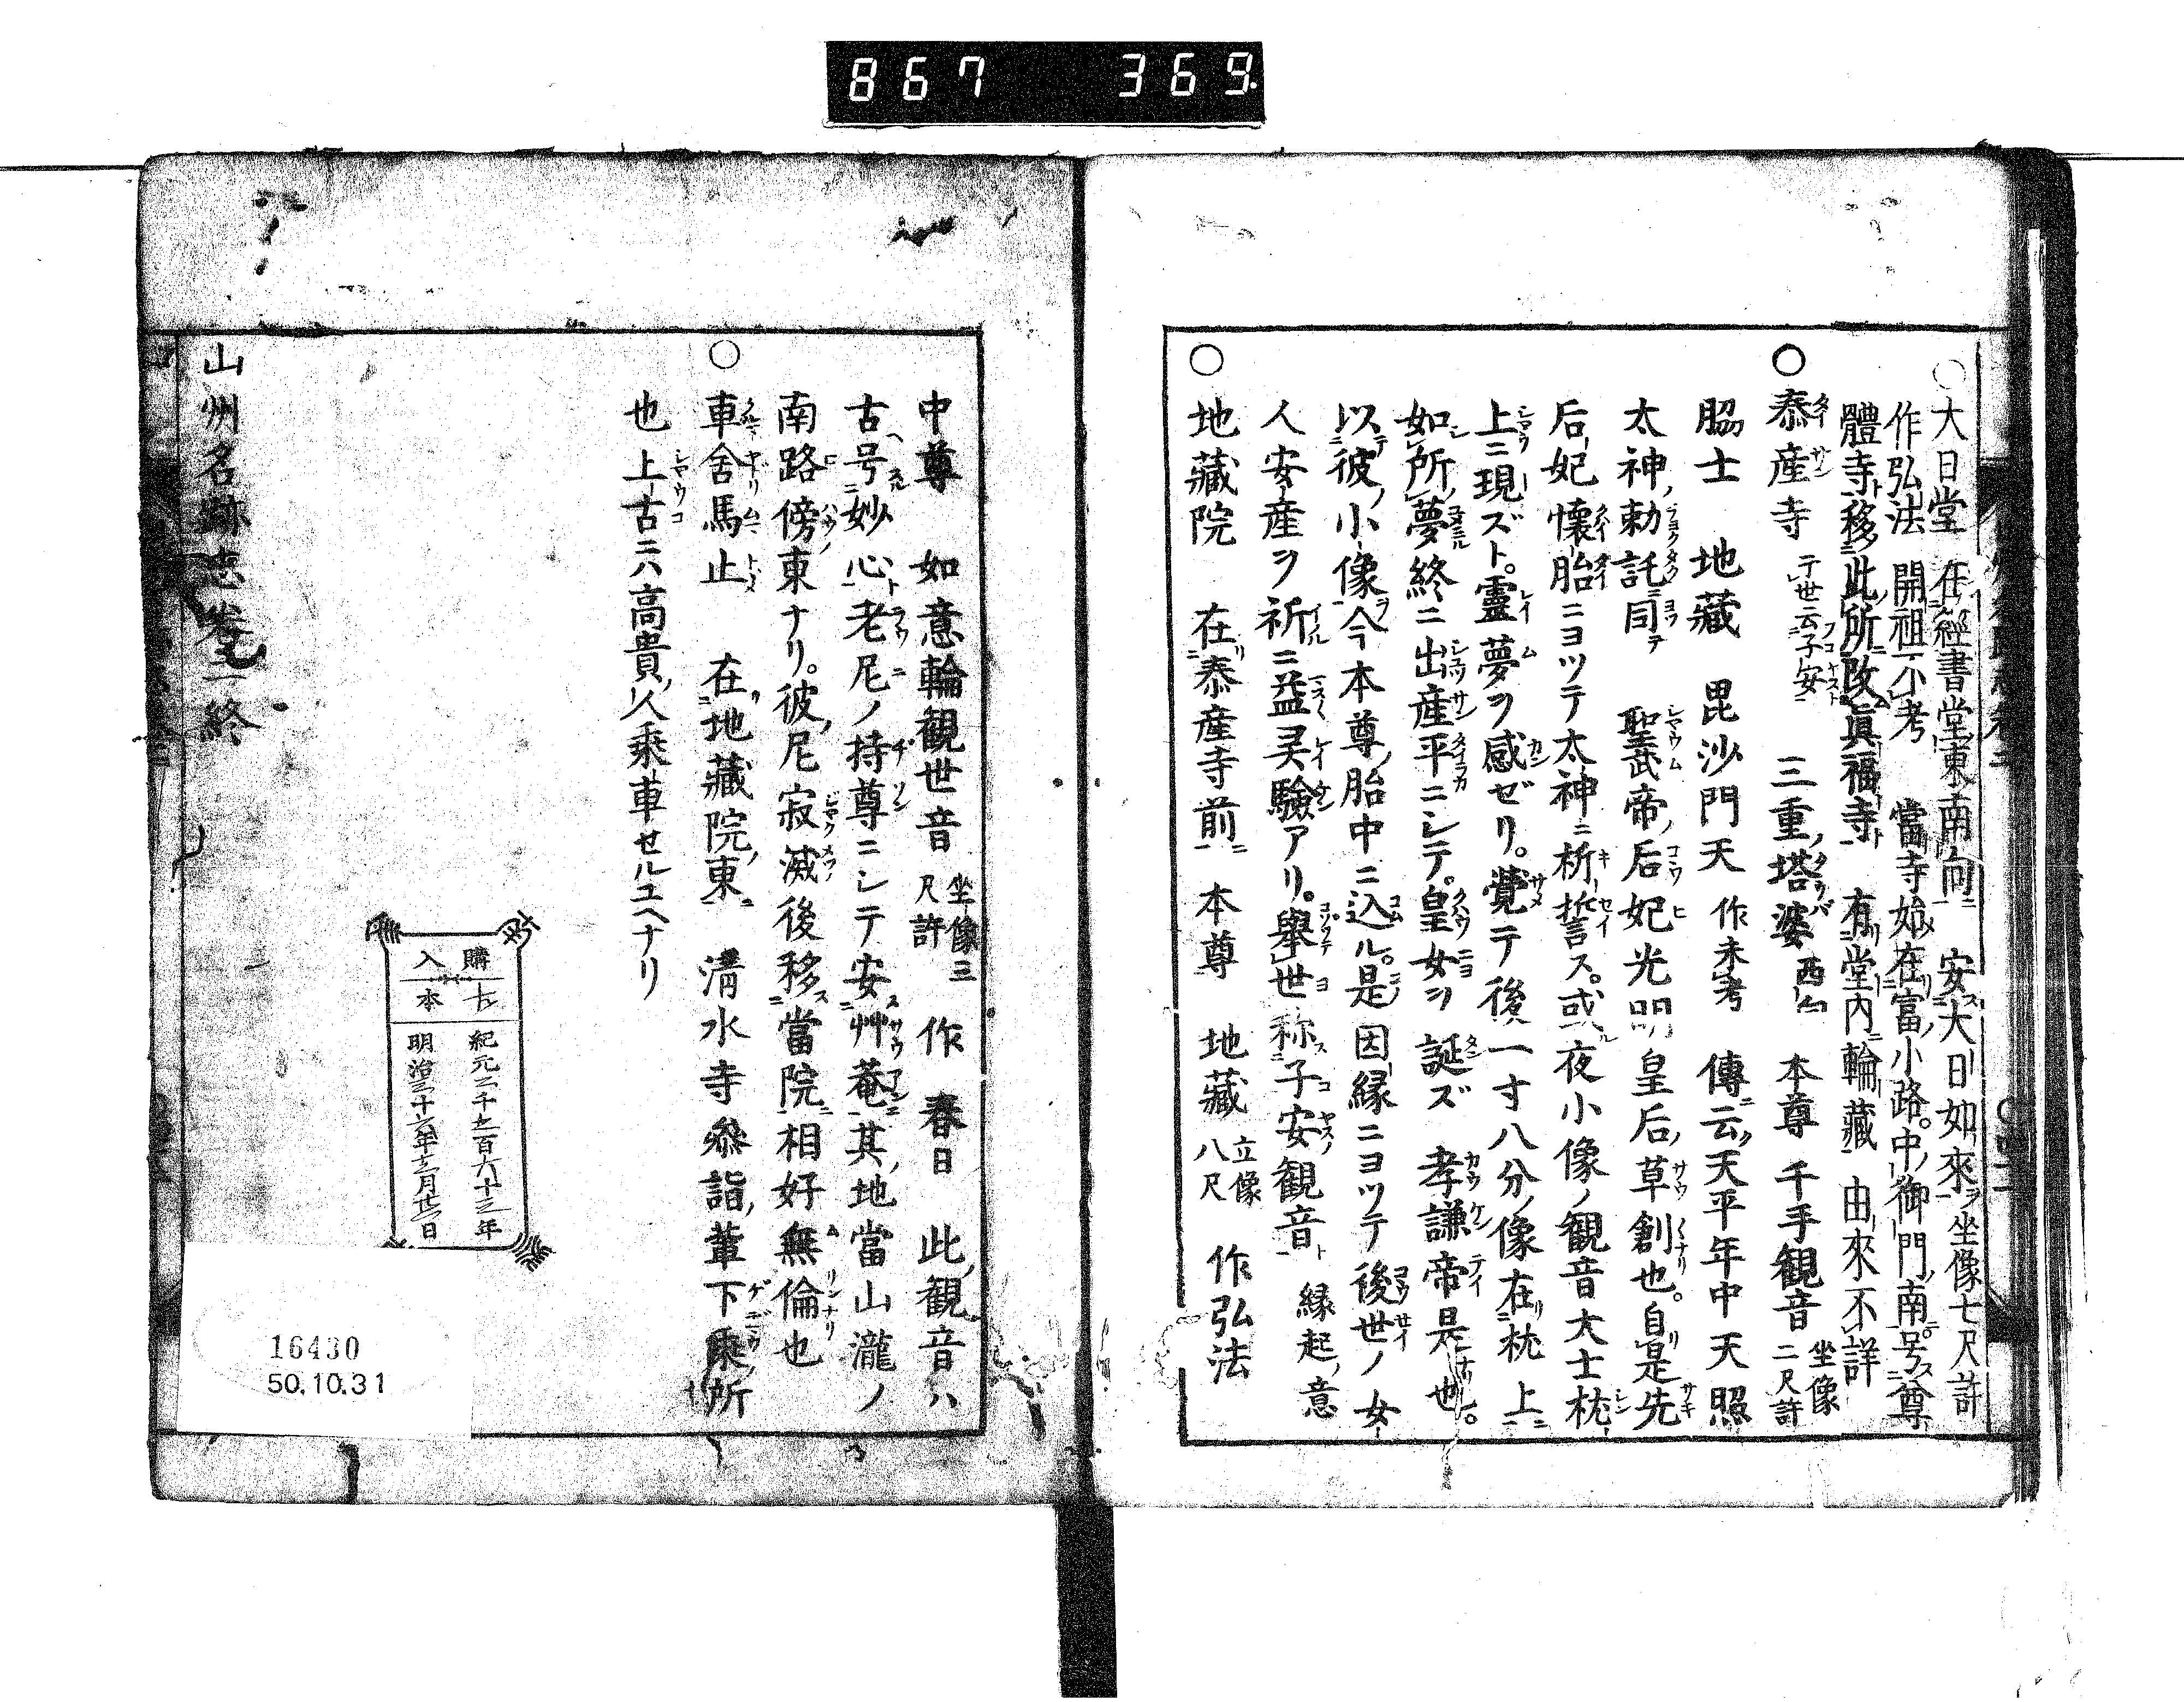 867 369
○大日堂 在経書堂東南向 安大日如來坐像七尺許
作弘法 開祖不考 當寺始在富小路中御門南号尊
體寺移此所改眞福寺 有堂内輪藏 由來不詳
○泰産寺 世云子安 三重塔婆西向 本尊千手観音坐像二尺許
脇士 地藏 毘沙門天作未考 傳云天平年中天照
太神勅託同 聖武帝后妃光明皇后草創也。自是先
后妃懐胎ニヨツテ太神ニ祈誓ス。或夜小像ノ観音大士枕
上ニ現ズト。霊夢ヲ感ゼリ。覚テ後一寸八分ノ像在枕上
如所夢終ニ出産平ニシテ。皇女ヲ誕ズ 孝謙帝是也。
以彼小像今本尊胎中ニ込ル。是因縁ニヨツテ後世ノ女
人安産ヲ祈ニ益灵驗アリ。舉世称子安観音 縁起ノ意
○地藏院 在泰産寺前 本尊 地藏立像八尺 作弘法
中尊 如意輪観世音坐像三尺許 作 春日 此観音ハ
古号妙心老尼ノ持尊ニシテ安艸菴其地當山瀧ノ
南路傍東ナリ。彼尼寂滅後移當院相好無倫也
○車舍馬止 在地藏院東 清水寺參詣輩下乘所
也上古ニハ高貴人乘車セルユヘナリ
山州名跡志巻之二終
購入
本
紀元二千五百六十三年
明治三十六年十二月廿二日
16430
50.10.31